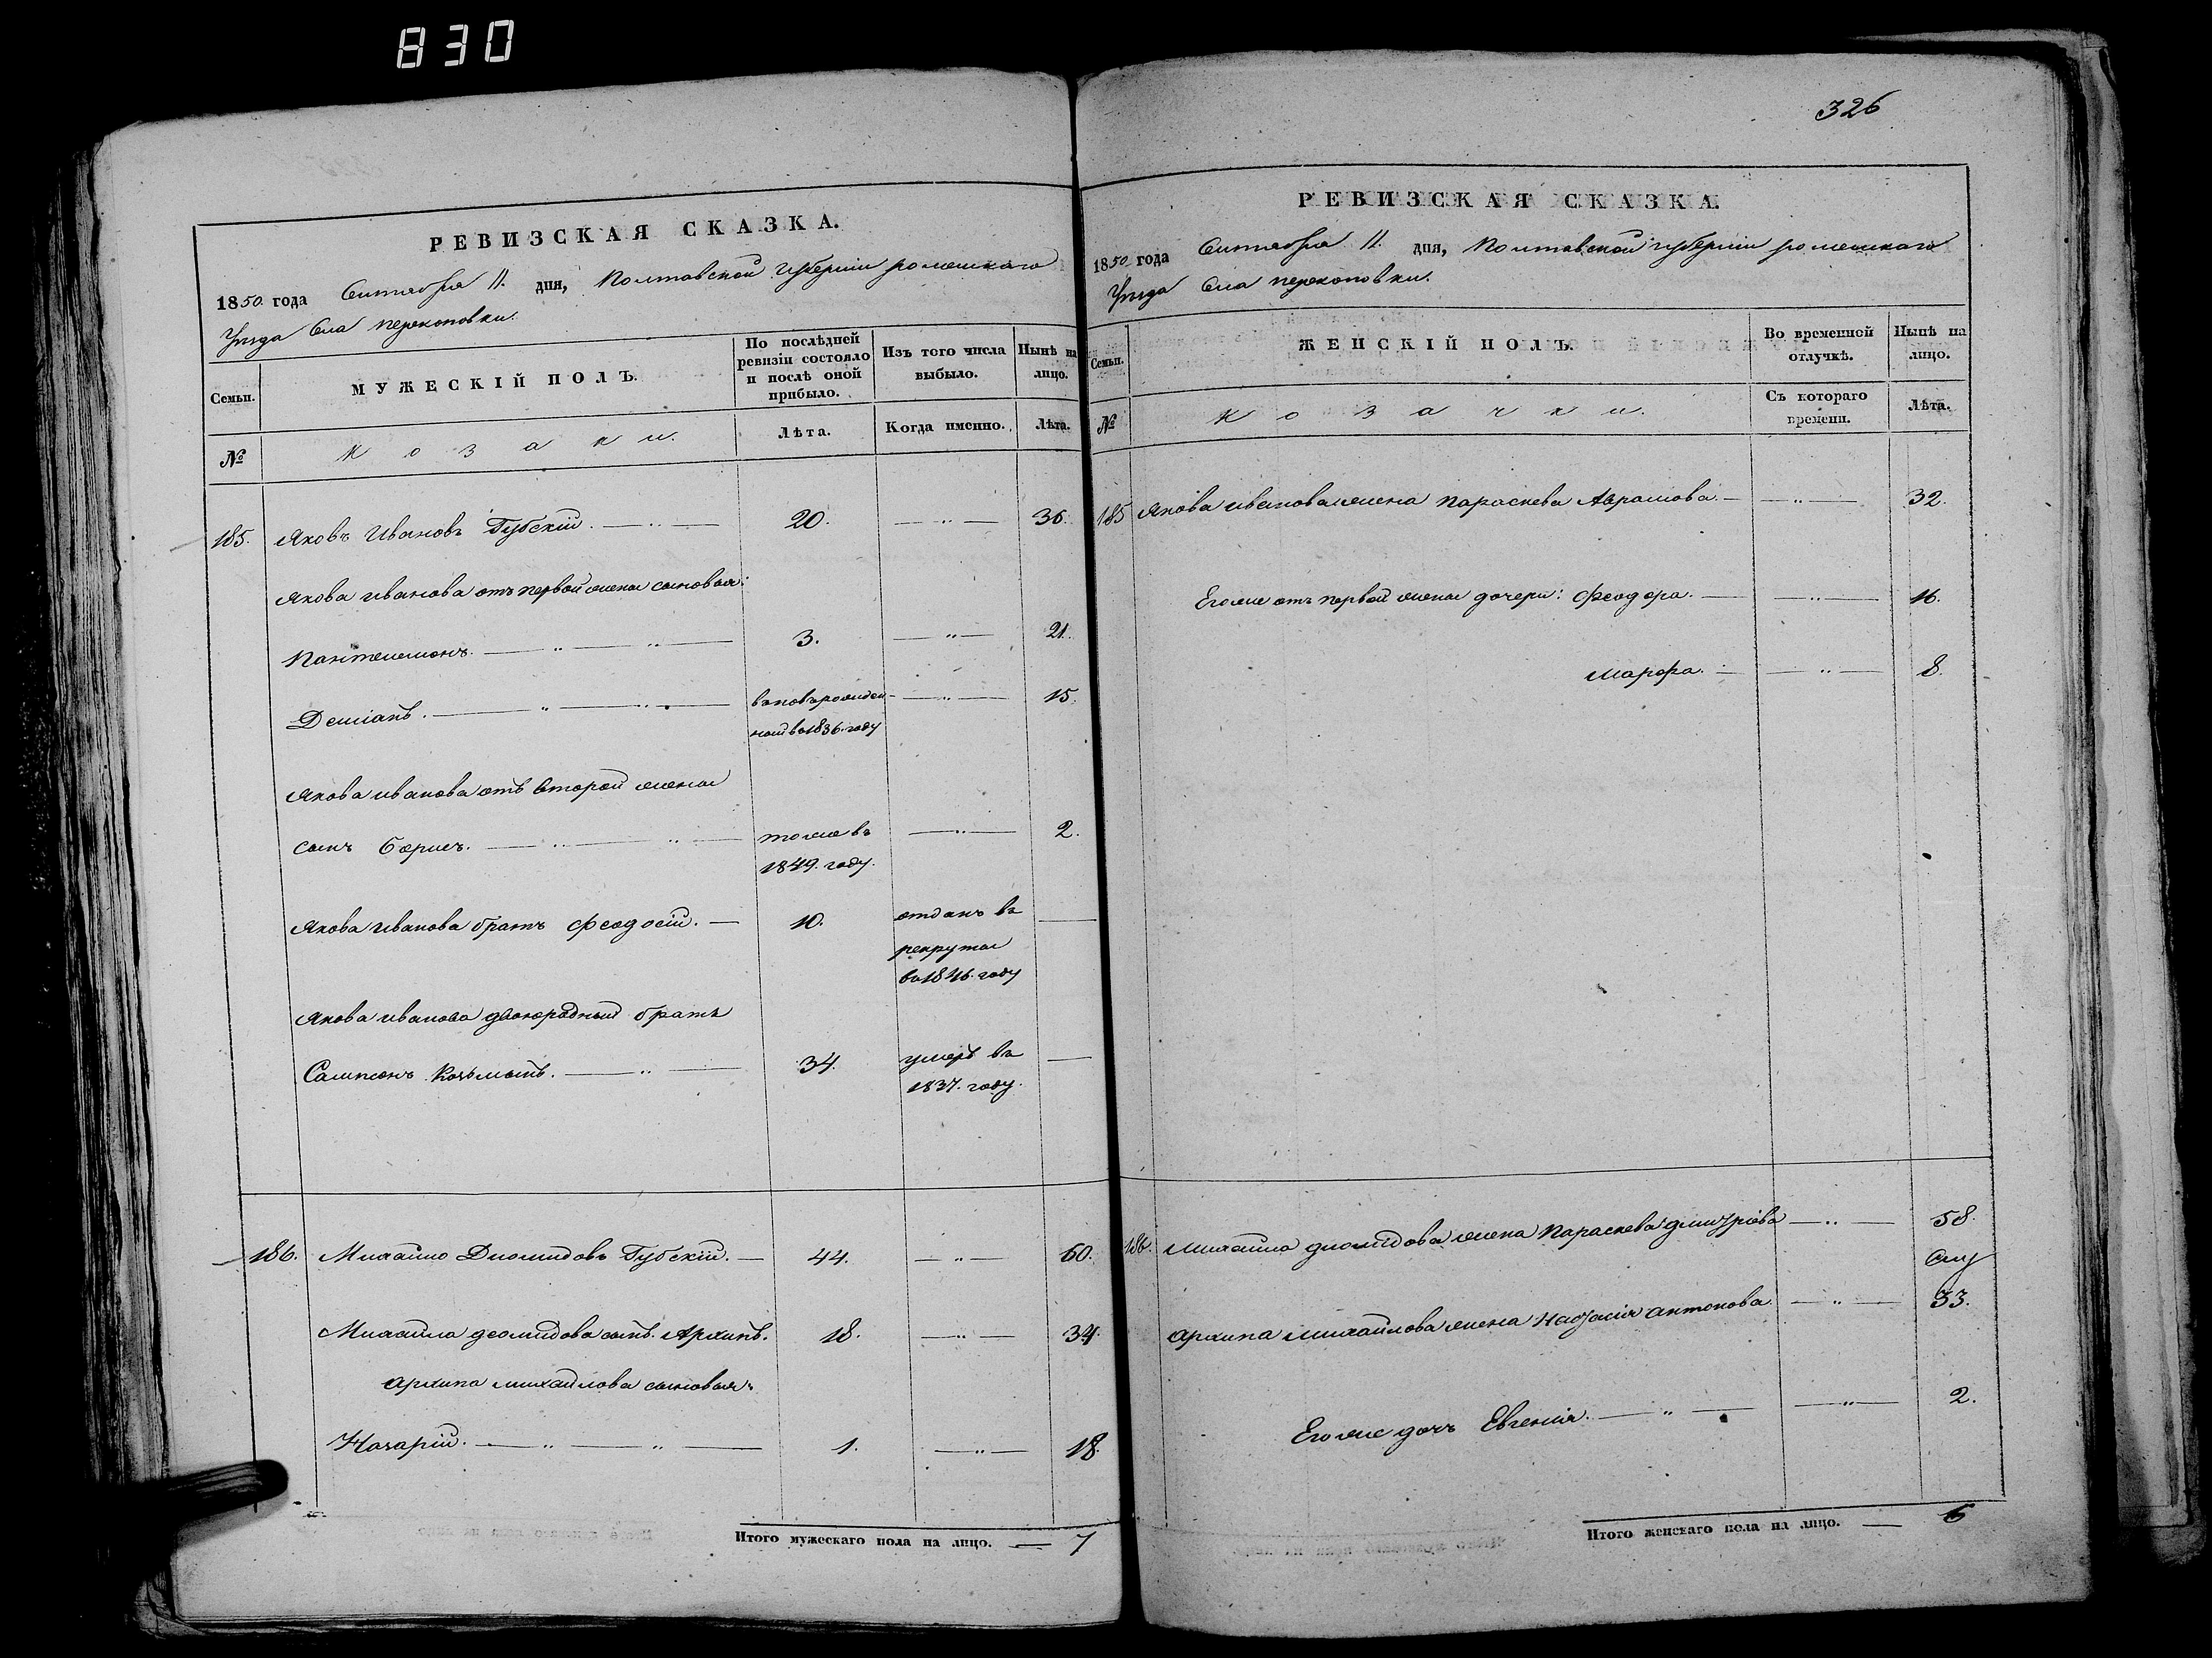 830
РЕВИЗСКАЯ СКАЗКА.
1850 года Сентября 11. дня, Полтавской губерніи роменскаго
Уезда Села перекоповки.
Семьи.
МУЖЕСКІЙ ПОЛЪ.
По послѣдней ревизіи состояло и послѣ оной прибыло.
Изъ того числа выбыло.
Нынѣ на лицо.
№
Козаки.
Лѣта.
Когда именно.
Лѣта.
185. Яковъ Ивановъ Губскій. 20. 36.
Якова иванова отъ первой жены сыновья:
Пантелемонъ. 3. 21.
Деміанъ. 15.
вновьрожден-
ный в 1836. году
Якова иванова отъ второй жены
сынъ борисъ. тоже въ 2.
1849. году.
Якова иванова братъ феодосій. 10. отданъ въ
рекруты
в 1846. году
Якова иванова двоюродный братъ
Сампсонъ Козьминъ. 34. умеръ въ
1837. году.
186. Михайло Диомидовъ Губскій. 44. 60.
Михайла деомидова сынъ Архипъ. 18. 34.
архипа михайлова сыновья:
Назарій. 1. 18.
Итого мужескаго пола на лицо. 7
326
РЕВИЗСКАЯ СКАЗКА.
1850 года Сентября 11. дня, Полтавской губерніи роменскаго
Уезда Села перекоповки.
Семьи.
ЖЕНСКІЙ ПОЛЪ.
Во временной отлучкѣ.
Нынѣ на лицо.
№
Козачки.
Съ котораго времени.
Лѣта.
185 Якова иванова жена параскева Аврамова. 32.
Егоже отъ первой жены дочери: феодора. 16.
марфа. 8.
186. михайла диомидова жена параскева дмитріева 58.
архипа михайлова жена Настасія антонова. 33.
Егоже дочь Евгенія. 2.
Итого женскаго пола на лицо. 6